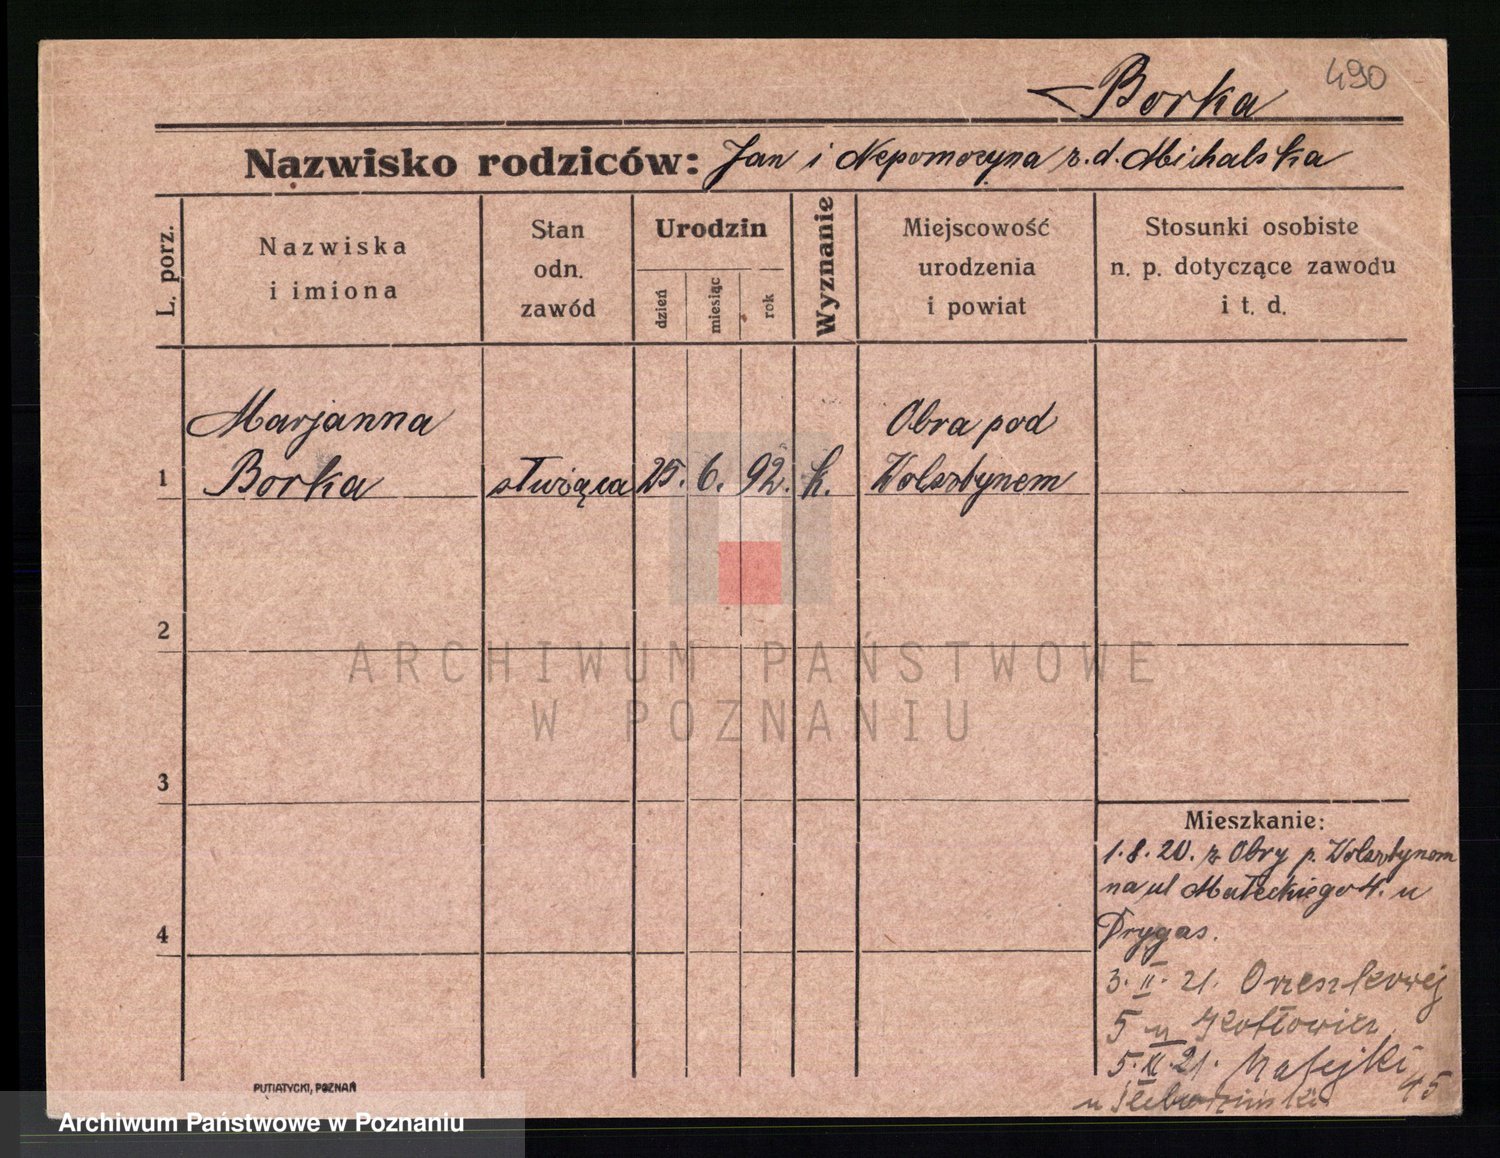 490
Borka
Nazwisko rodziców: Jan i Nepomocyna z.d. Michalska
L. porz.
Nazwiska
i imiona
Stan
odn.
zawód
Urodzin
dzień
miesiąc
rok
Wyznanie
Miejscowość
urodzenia
i powiat
Stosunki osobiste
n. p. dotyczące zawodu
i t. d.
Marjanna
Obra pod
1 Borka służąca 25. 6. 92. k. Wolsztynem
2
ARCHIWUM PAŃSTWOWE
W POZNANIU
3
Mieszkanie:
1.8.20. z Obry p. Wolsztynem
na ul Małeckiego 4. u
4
Drygas.
3.II.21. Orzeszkowej
5 u
5.XI.21. Matejki 45
u
PUTIATYCKI, POZNAŃ
Archiwum Państwowe w Poznaniu